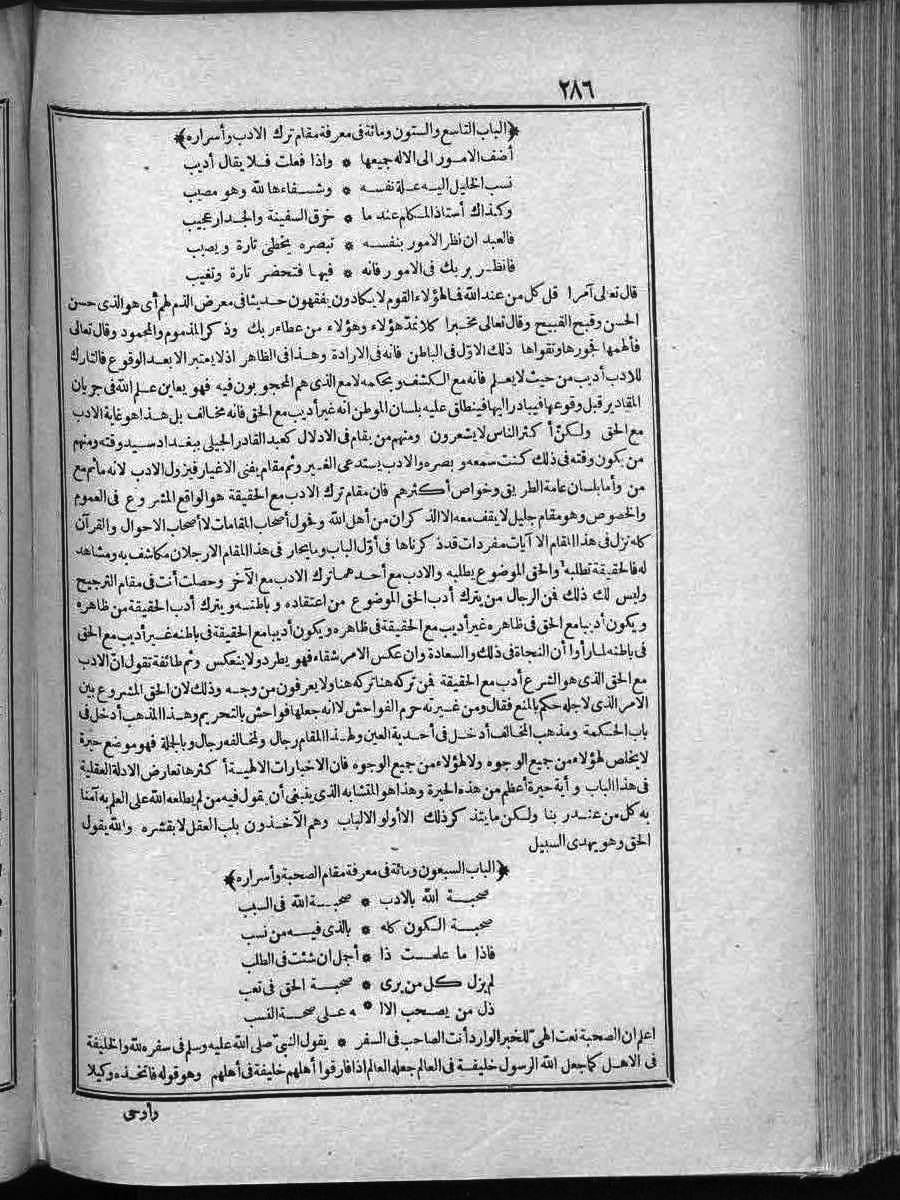 ٢٨٦
﴿الباب التاسع والستون ومائة فى معرفة مقام ترك الادب وأسراره﴾
أضف الامور الى الاله جميعها * واذا فعلت فلا يقال أديب
نسب الخليل اليه علة نفسه * وشفاءها لله وهو مصيب
وكذاك أستاذ المكلم عند ما * خرق السفينة والجدار عجيب
فالعبد ان نظر الامور بنفسه * تبصره يخطئ تارة ويصيب
فانظر بربك فى الامور فانه * فيها فتحضر تارة وتغيب
قال تعالى آمرا قل كل من عند الله فمال هؤلاء القوم لا يكادون يفقهون حديثا فى معرض الذم لهم أى هو الذى حسن
الحسن وقبح القبيح وقال تعالى مخبرا كلا نمد هؤلاء وهؤلاء من عطاء ربك وذكر المذموم والمحمود وقال تعالى
فألهمها فجورها وتقواها ذلك الاوّل فى الباطن فانه فى الارادة وهذا فى الظاهر اذ لا يعتبر الا بعد الوقوع فالتارك
للادب أديب من حيث لا يعلم فانه مع الكشف وبحكمه لا مع الذى هم المحجوبون فيه فهو يعاين علم الله فى جريان
المقادير قبل وقوعها فيبادر اليها فينطلق عليه بلسان الموطن انه غير أديب مع الحق فانه مخالف بل هذا هو غاية الادب
مع الحق ولكنّ أكثر الناس لا يشعرون ومنهم من يقام فى الادلال كعبد القادر الجيلى ببغداد سيد وقته ومنهم
من يكون وقته فى ذلك كنت سمعه وبصره والادب يستدعى الغير وثم مقام يفنى الاغيار فيزول الادب لانه ما ثم مع
من وأما بلسان عامة الطريق وخواص أكثرهم فان مقام ترك الادب مع الحقيقة هو الواقع المشروع فى العموم
والخصوص وهو مقام جليل لا يقف معه الا الذكران من أهل الله وفحول أصحاب المقامات لا أصحاب الاحوال والقرآن
كله نزل فى هذا المقام الا آيات مفردات قد ذكرناها فى أوّل الباب وما يحار فى هذا المقام الا رجلان مكاشف به ومشاهد
له فالحقيقة تطلبه والحق الموضوع يطلبه والادب مع أحدهما ترك الادب مع الآخر وحصلت أنت فى مقام الترجيح
وليس لك ذلك فمن الرجال من يترك أدب الحق الموضوع من اعتقاده وباطنه ويترك أدب الحقيقة من ظاهره
ويكون أديبا مع الحق فى ظاهره غير أديب مع الحقيقة فى ظاهره ويكون أديبا مع الحقيقة فى باطنه غير أديب مع الحق
فى باطنه لما رأوا أن النجاة فى ذلك والسعادة وان عكس الامر شقاء فهو يطرد ولا ينعكس وثم طائفة تقول انّ الادب
مع الحق الذى هو الشرع أدب مع الحقيقة فمن تركه هنا تركه هنا ولا يعرفون من وجه وذلك لان الحق المشروع بين
الامر الذى لاجله حكم بالمنع فقال ومن غيرته حرم الفواحش لا انه جعلها فواحش بالتحريم وهذا المذهب أدخل فى
باب الحكمة ومذهب المخالف أدخل فى أحدية العين ولهذا المقام رجال ولمخالفه رجال وبالجملة فهو موضع حيرة
لا يخلص لهؤلاء من جميع الوجوه ولا لهؤلاء من جميع الوجوه فان الاخبارات الالهية أكثرها تعارض الادلة العقلية
فى هذا الباب وأية حيرة أعظم من هذه الحيرة وهذا هو المتشابه الذى ينبغى أن يقول فيه من لم يطلعه الله على العلم به آمنا
به كل من عند ربنا ولكن ما يتذكر ذلك الا أولو الالباب وهم الآخذون بلب العقل لا بقشره والله يقول
الحق وهو يهدى السبيل
﴿الباب السبعون ومائة فى معرفة مقام الصحبة وأسراره﴾
صحبة الله بالادب * صحبة الله فى السبب
صحبة الكون كله * بالذى فيه من نسب
فاذا ما علمت ذا * أجمل ان شئت فى الطلب
لم يزل كل من يرى * صحبة الحق فى تعب
ذل من يصحب الا * ه على صحة النسب
اعلم ان الصحبة نعت الهىّ للخبر الوارد أنت الصاحب فى السفر * يقول النبىّ صلى الله عليه وسلم فى سفره لله والخليفة
فى الاهل كما جعل الله الرسول خليفة فى العالم جعله العالم اذا فارقوا أهلهم خليفة فى أهلهم وهو قوله فاتخذه وكيلا
وأوحى